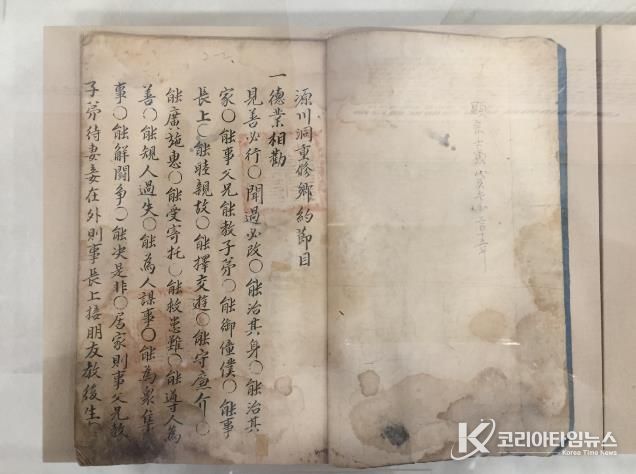 源川洞重修鄉約節目
一德業相勸
見善必行○聞過必改○能治其身○能治其
家○能事父兄能教子弟○能御僮僕○能事
長上○能睦親故○能擇交遊○能守廉介○
能廣施惠○能受寄托○能救患難○能導人為
善○能規人過失○能為人謀事○能為衆集
事○能解鬪争○能决是非○居家則事父兄教
子弟待妻妾在外則事長上接朋友教後生
코리아타임뉴스
Korea Time News